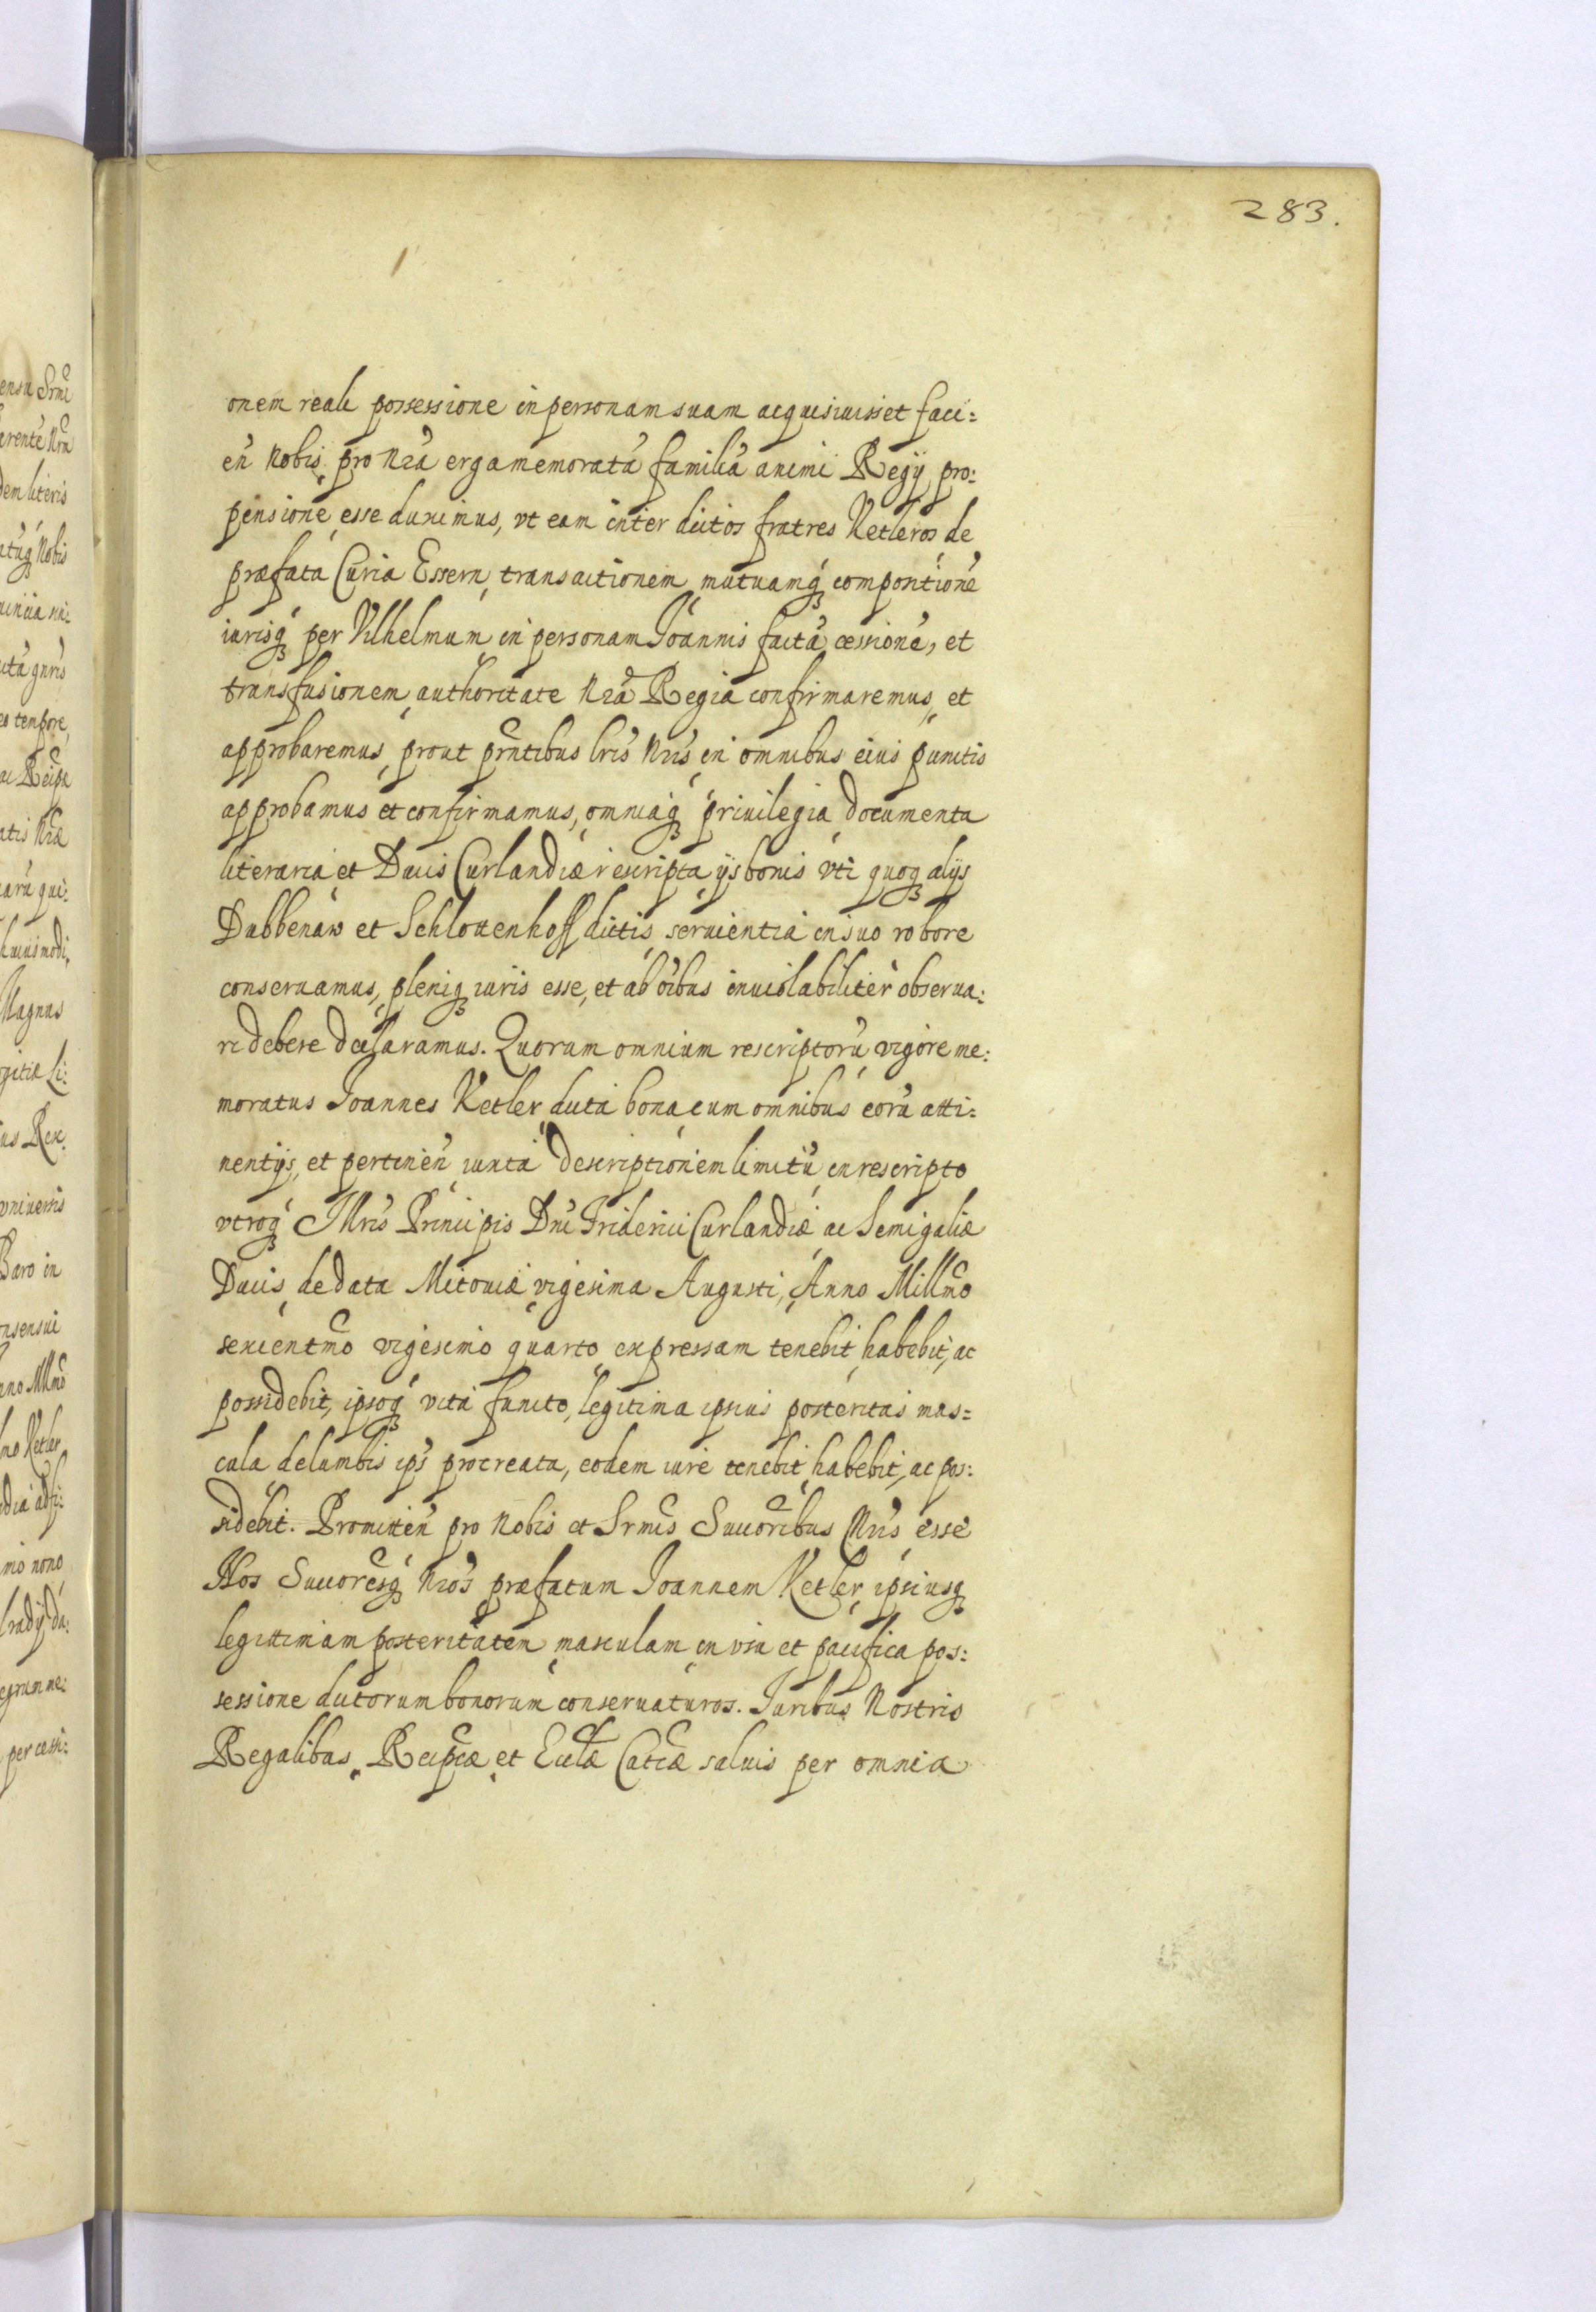 283.
onem reale possessione in personam suam acquisiuisset faci=
en̄ Nobis pro Nrā erga memoratā familiā animi Regÿ pro:
pensionē esse duximus, vt eam inter dictos fratres Ketleros de
præfata Curia Essern, transactionem, mutuamq́ꝫ compositionē
iurisq́ꝫ per Vilhelmum in personam Joannis factā cessionē, et
transfusionem, authoritate Nrā Regia confirmaremus, et
approbaremus, prout prn̄tibus lrīs Nrīs in omnibus eius punctis
approbamus et confirmamus, omniaq́ꝫ priuilegia documenta
literaria, et Ducis Curlandiæ rescripta, ijs bonis vti quoqꝫ alijs
Dubbenaw et Schlottenhoff dictis, seruientia in suo robore
conseruamus, pleniqꝫ iuris esse, et ab oībus inuiolabiliter obserua:
ri debere declaramus. Quorum omnium rescriptorū vigore me:
moratus Joannes Ketler dicta bona, cum omnibus eorū atti:
nentijs, et pertinen̄ iuxta descriptionem limitū, in rescripto
vtroq́ꝫ Illris Principis Dnī Friderici Curlandiæ ac Semigaliæ
Ducis, de data Mitoviæ vigesima Augusti, Anno Millmo
sexcentmo vigesimo quarto, expressam tenebit, habebit, ac
possidebit, ipsoq́ꝫ vita functo, legitima ipsius posteritas mas=
cula de lumbis ips̄ procreata, eodem iure tenebit, habebit, ac pos:
sidebit. Promitten̄ pro Nobis et Srmis Succoribus Nrīs, esse
Nos Succoresq́ꝫ Nrōs, præfatum Joannem Ketler, ipsiusqꝫ
legittimam posteritatem, masculam, in vsu et pacifica pos:
sessione dictorum bonorum conseruaturos. Juribus Nostris
Regalibus, Reipcæ, et Ecclæ Catcæ saluis per omnia